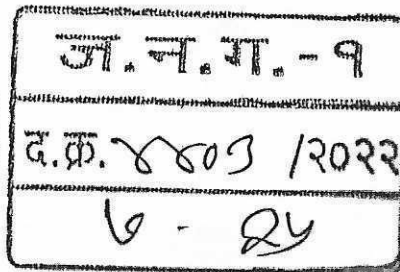 अ.न.ग.-१
द.क्र. ४४०३ /२०२२
७ - २५